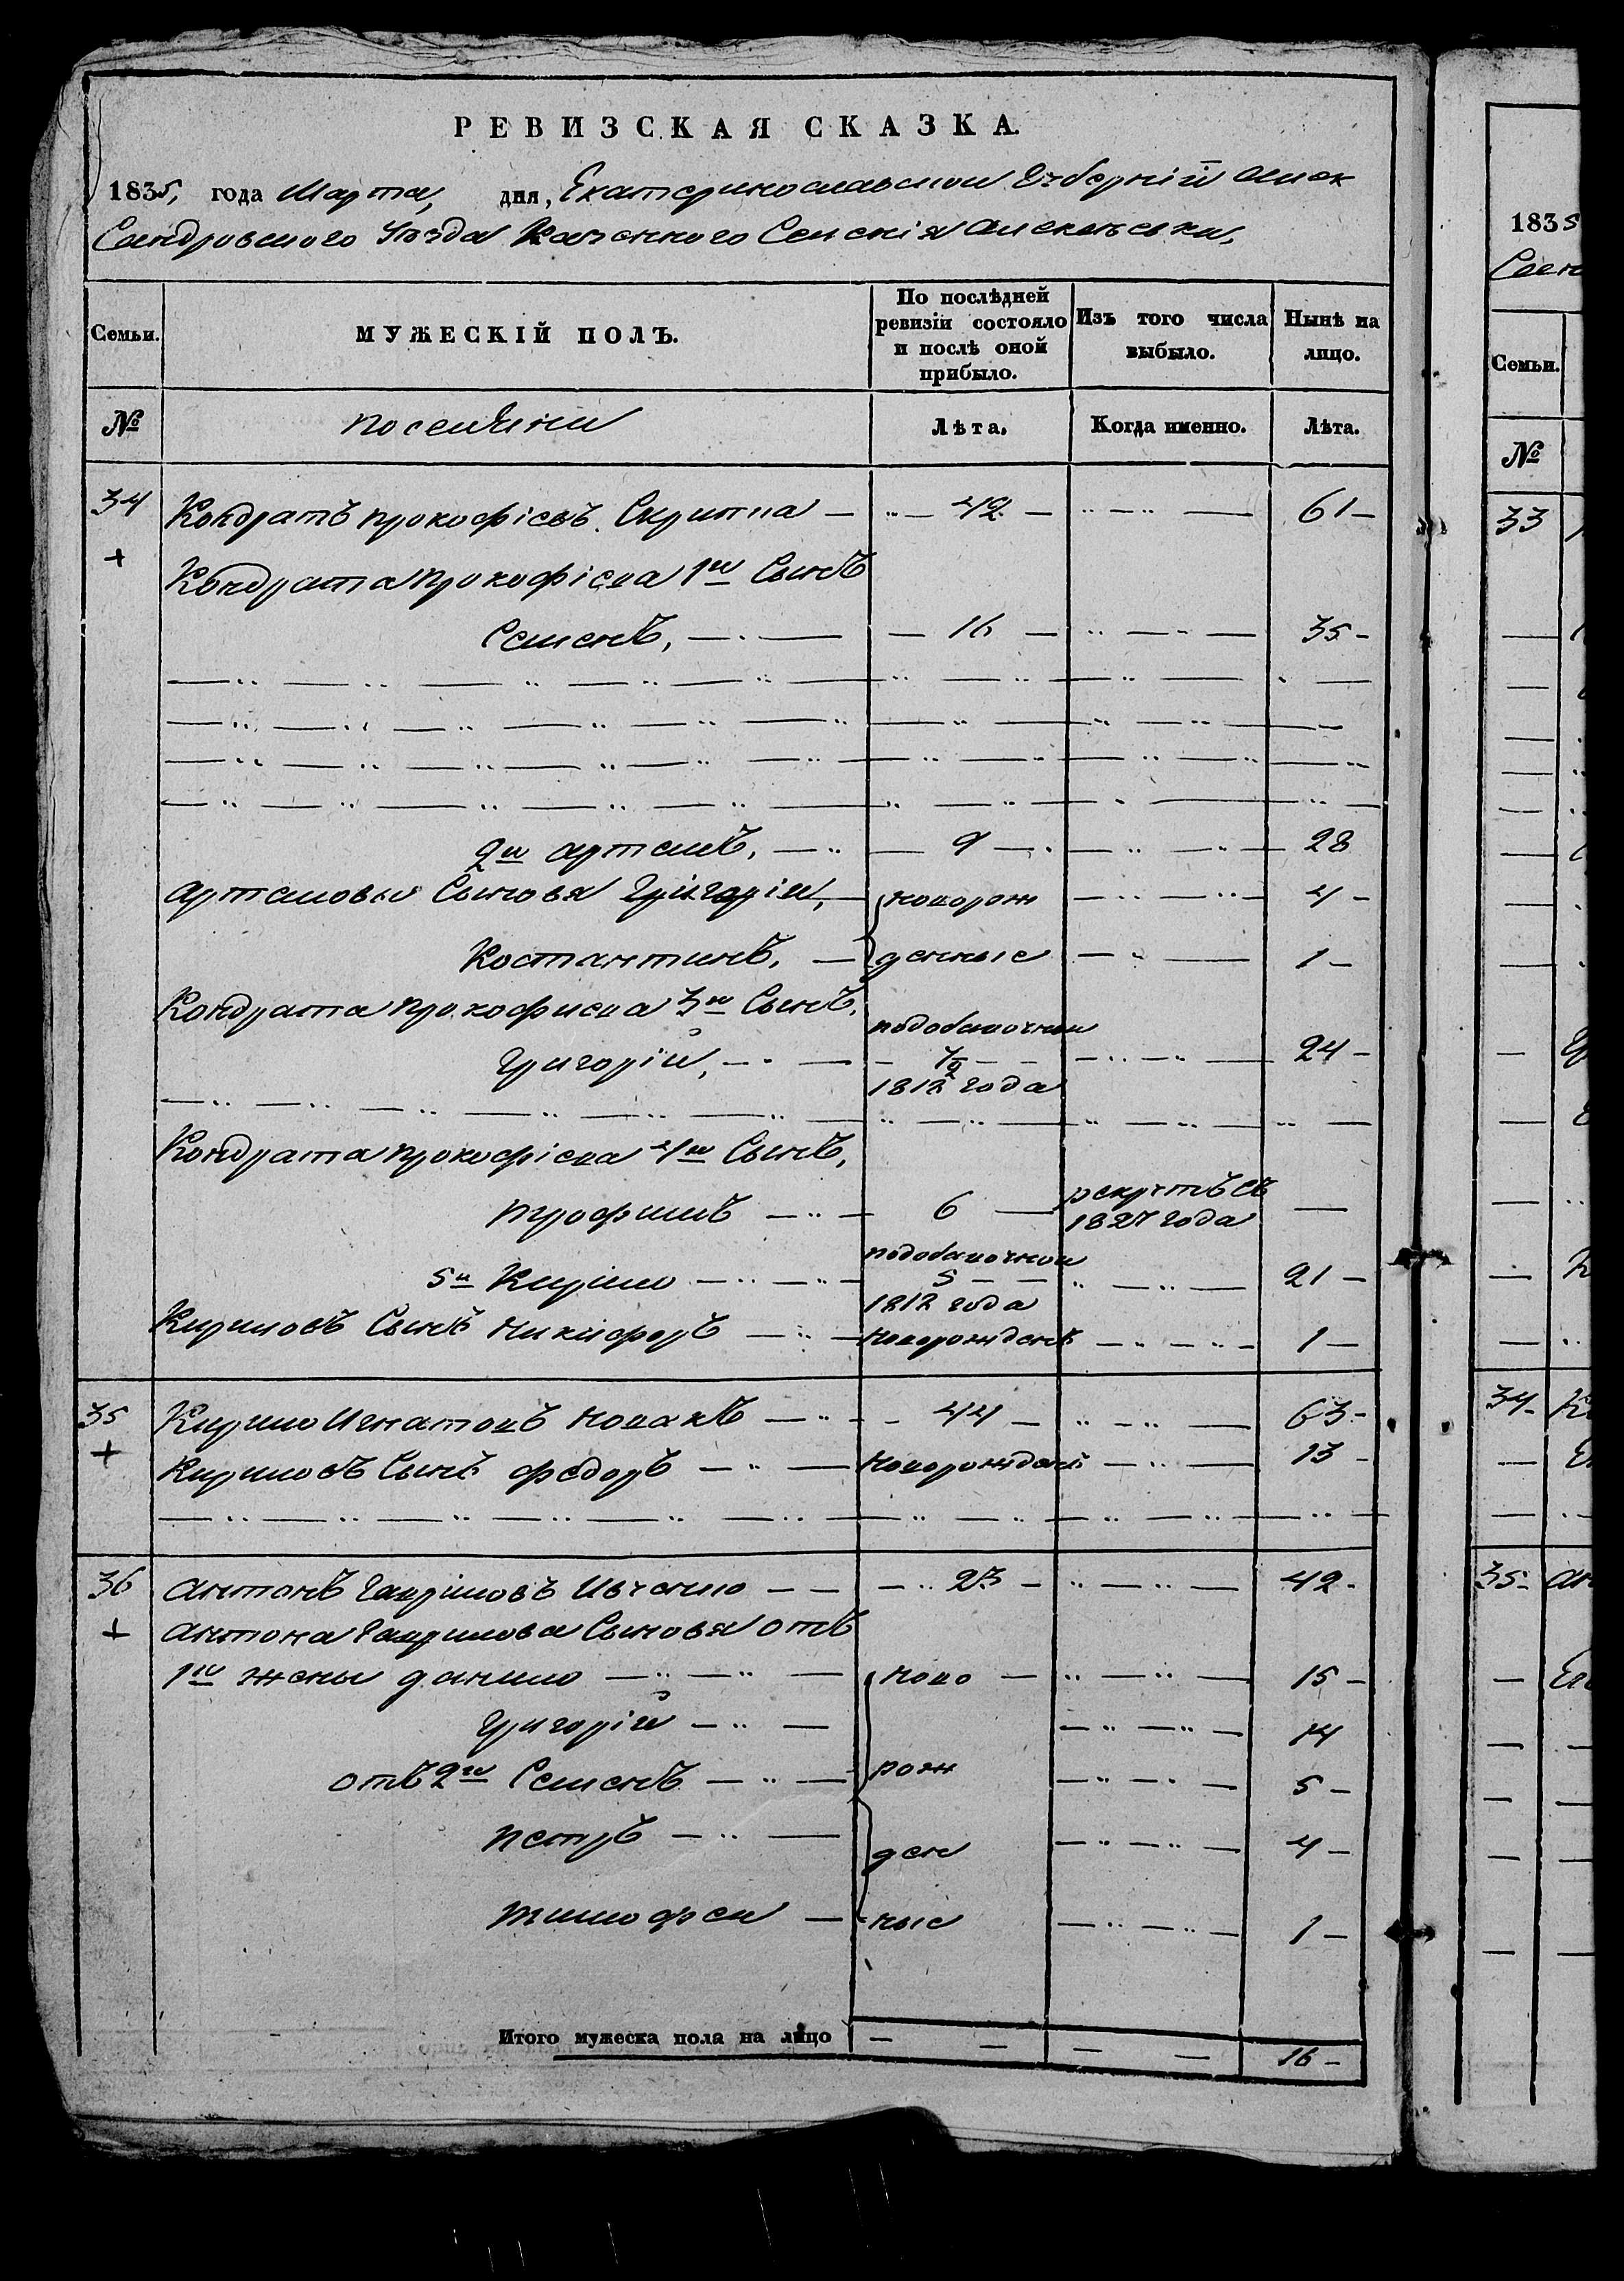 РЕВИЗСКАЯ СКАЗКА.
1835, года Марта, дня, Екатеринославской Губерніи Алек
Сандровского Уѣзда Казенного Селенія Алексѣевки,
Семьи. МУЖЕСКІЙ ПОЛЪ. По послѣдней ревизіи состояло и послѣ оной прибыло. Изъ того числа выбыло. Нынѣ на лицо.
№ Поселяни Лѣта. Когда именно. Лѣта.
34 Кондратъ Прокофіевъ Скрипка 42 61
+
Кондрата Прокофіева 1й Сынъ
Семенъ, 16 35
2й Артемъ, 9 28
Артемовы Сыновя Григорій, новорож 4
Костантинъ, денные 1
Кондрата Прокофиева 3й Сынъ,
подобавочной
Григорій, 1/2 24
1812 года
Кондрата Прокофіева 4й Сынъ,
Трофимъ 6 рекрутѣ съ 1827 года
подобавочной
5й Кирило 5 21
1812 года
Кириловъ Сынъ Никифоръ Новорожденъ 1
35 Кирило Игнатовъ Новакъ 44 63
+ Кириловъ Сынъ Федоръ Новорожденъ 13
36 Антонъ Гавриловъ Ивченко 23 42
+ Антона Гаврилова Сыновя отъ
1й жены Данило ново 15
Григорій 14
отъ 2й Семенъ рож 5
Петръ ден 4
Тимофей ные 1
Итого мужеска пола на лицо 16
1835
Семьи.
№
33
34
35